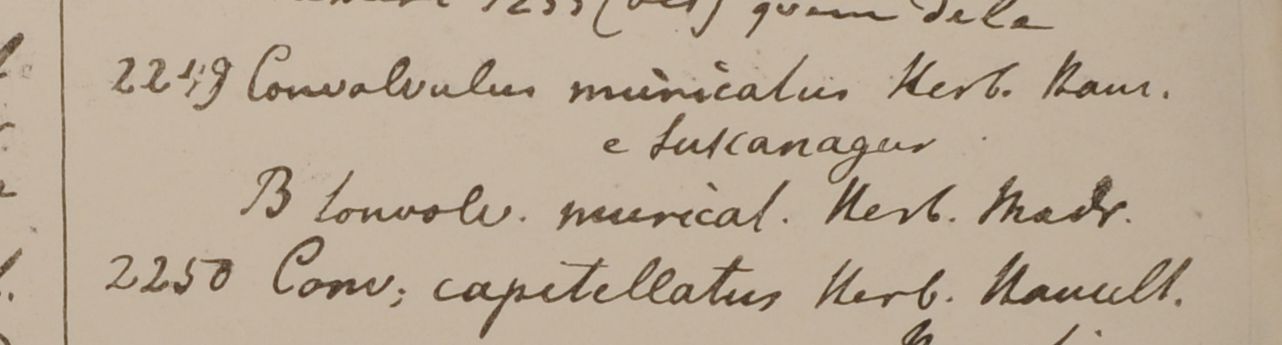 1255 (bis) quem dele
2249 Convolvulus muricatus Herb. Ham.
e Sukanagur
B Convolv. murical. Herb. Madr.
2250 Conv; capitellatus Herb. Hamilt.